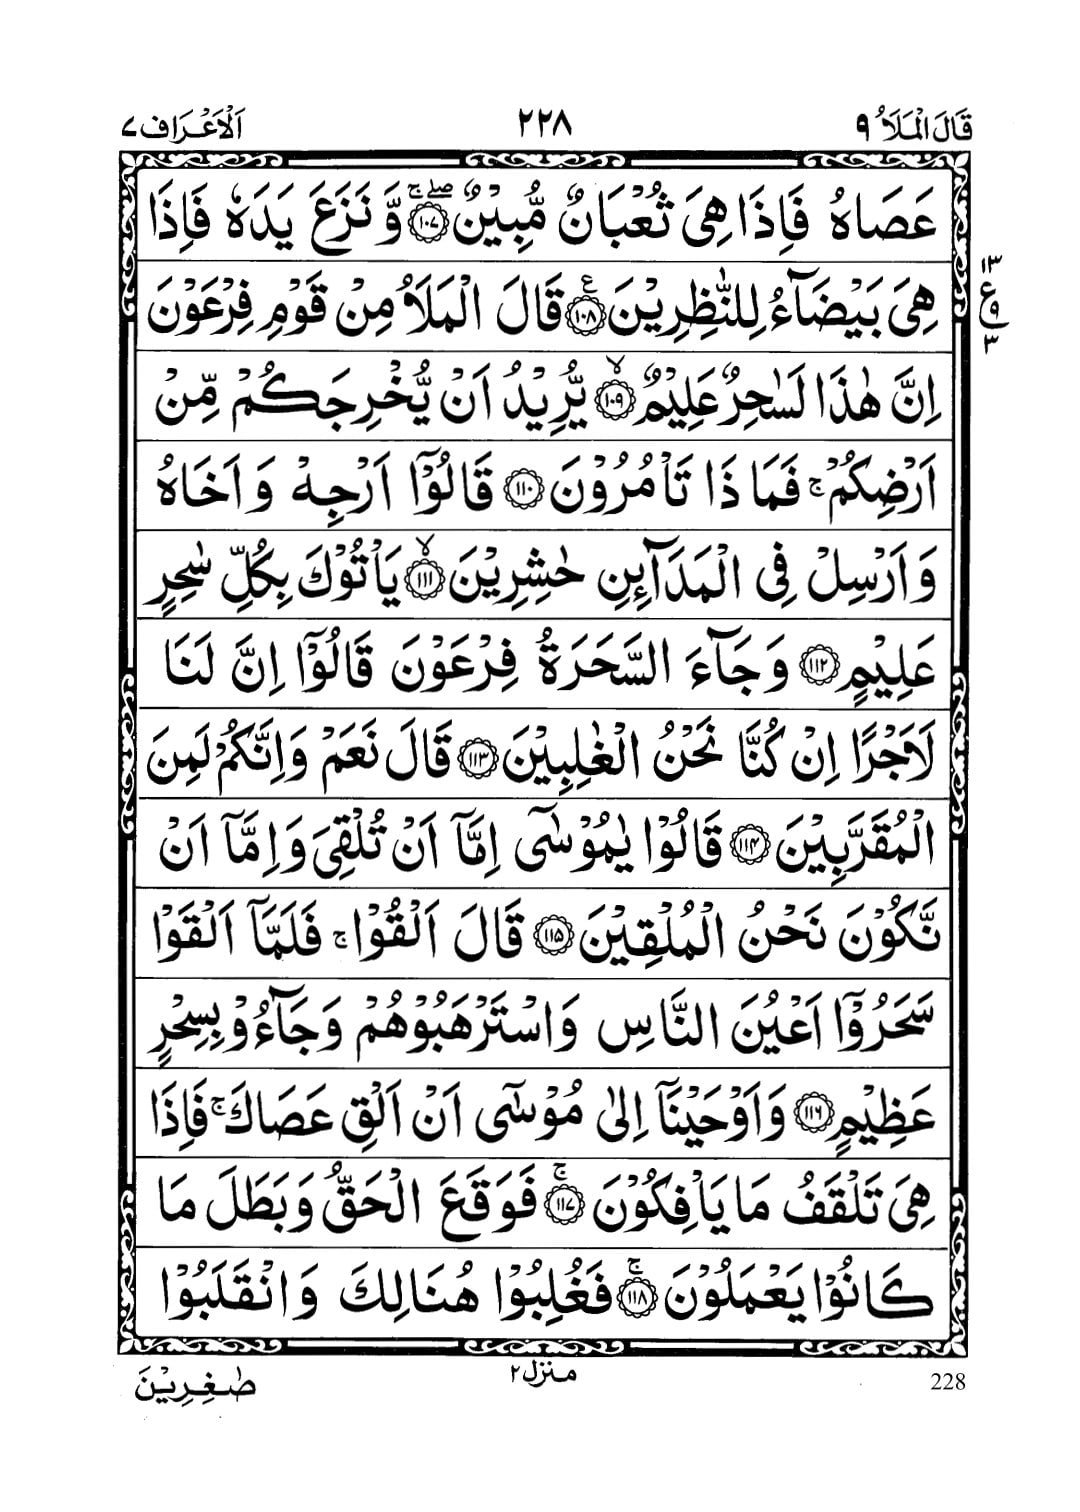 قَالَ الْمَلَاُ ۹
۲۲۸
اَلْاَعْرَاف ۷
عَصَاهُ فَاِذَا هِیَ ثُعْبَانٌ مُّبِیْنٌ ۚۖ﴿۱۰۷﴾ وَّ نَزَعَ یَدَهٗ فَاِذَا
هِیَ بَیْضَآءُ لِلنّٰظِرِیْنَ ۠﴿۱۰۸﴾ قَالَ الْمَلَاُ مِنْ قَوْمِ فِرْعَوْنَ
۱۳
ع
۹
۳
اِنَّ هٰذَا لَسٰحِرٌ عَلِیْمٌ ۙ﴿۱۰۹﴾ یُّرِیْدُ اَنْ یُّخْرِجَكُمْ مِّنْ
اَرْضِكُمْ ۚ فَمَا ذَا تَاْمُرُوْنَ ﴿۱۱۰﴾ قَالُوْۤا اَرْجِهْ وَ اَخَاهُ
وَ اَرْسِلْ فِی الْمَدَآىِٕنِ حٰشِرِیْنَ ۙ﴿۱۱۱﴾ یَاْتُوْكَ بِكُلِّ سٰحِرٍ
عَلِیْمٍ ﴿۱۱۲﴾ وَ جَآءَ السَّحَرَةُ فِرْعَوْنَ قَالُوْۤا اِنَّ لَنَا
لَاَجْرًا اِنْ كُنَّا نَحْنُ الْغٰلِبِیْنَ ﴿۱۱۳﴾ قَالَ نَعَمْ وَ اِنَّكُمْ لَمِنَ
الْمُقَرَّبِیْنَ ﴿۱۱۴﴾ قَالُوْا یٰمُوْسٰۤی اِمَّاۤ اَنْ تُلْقِیَ وَ اِمَّاۤ اَنْ
نَّكُوْنَ نَحْنُ الْمُلْقِیْنَ ﴿۱۱۵﴾ قَالَ اَلْقُوْا ۚ فَلَمَّاۤ اَلْقَوْا
سَحَرُوْۤا اَعْیُنَ النَّاسِ وَ اسْتَرْهَبُوْهُمْ وَ جَآءُوْ بِسِحْرٍ
عَظِیْمٍ ﴿۱۱۶﴾ وَ اَوْحَیْنَاۤ اِلٰی مُوْسٰۤی اَنْ اَلْقِ عَصَاكَ ۚ فَاِذَا
هِیَ تَلْقَفُ مَا یَاْفِكُوْنَ ۚ﴿۱۱۷﴾ فَوَقَعَ الْحَقُّ وَ بَطَلَ مَا
كَانُوْا یَعْمَلُوْنَ ۚ﴿۱۱۸﴾ فَغُلِبُوْا هُنَالِكَ وَ انْقَلَبُوْا
228
منزل ۲
صٰغِرِیْنَ